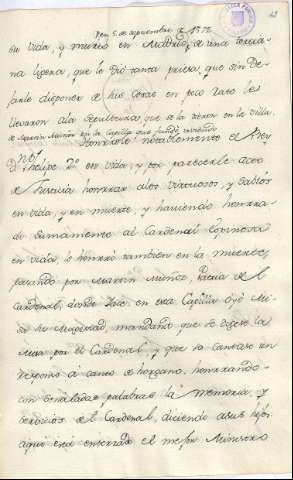 en 5 de septiembre de 1572
su vida, y murió en Madrid de una tercia-
na ligera, que le dió tanta priesa, que sin de-
jarle disponer de sus cosas en poco rato le
llevaron a la sepultura que la tienen en la villa
de Martin Muñoz en la Capilla que fundó
Honrróle notablemente el Rey
Dn. Phelipe 2º en vida, y por parecerle acto
de Justicia honrrar a los virtuosos, y sabios
en vida, y en muerte, y haviendo honrra-
do sumamente al Cardenal Espinosa
en vida, le honrró tambien en la muerte,
pasando por Martin Muñoz, Patria de el
Cardenal, donde yace en esta Capilla oyó Mi-
sa su Magestad, mandando que se dijese la
Misa por el Cardenal y que se cantase un
responso a canto de horgano, honrrando-
con señaladas palabras la memoria, y
servicios de el Cardenal, diciendo a sus hijos
aqui está enterrado el mejor Ministro